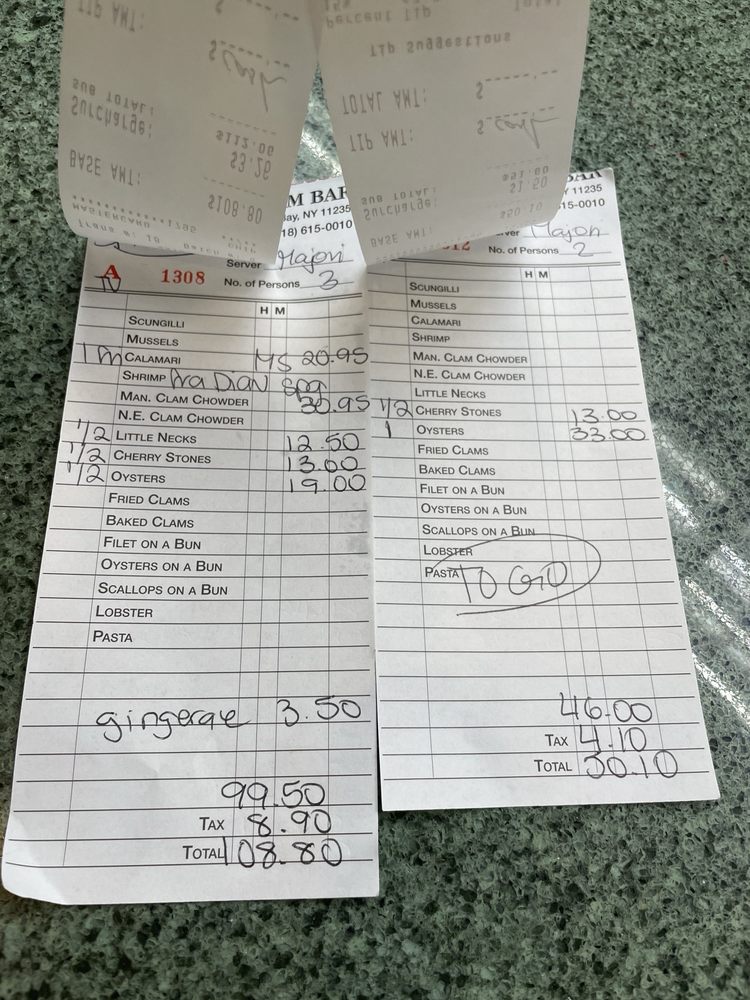 TIP AMT:
$ cash
SUB TOTAL:
$112.06
Surcharge:
$3.26
BASE AMT:
$108.80
MASTERCARD
Percent Tip
Total
Tip Suggestions
TOTAL AMT:
$
TIP AMT:
$ cash
SUB TOTAL:
Surcharge:
$1.50
BASE AMT:
M BAR
Bay, NY 11235
18) 615-0010
Server
A 1308 No. of Persons 3
H M
SCUNGILLI
MUSSELS
1 m CALAMARI MS 20.95
SHRIMP
MAN. CLAM CHOWDER 30.95
N.E. CLAM CHOWDER
1/2 LITTLE NECKS 12.50
1/2 CHERRY STONES 13.00
1/2 OYSTERS 19.00
FRIED CLAMS
BAKED CLAMS
FILET ON A BUN
OYSTERS ON A BUN
SCALLOPS ON A BUN
LOBSTER
PASTA
gingerale 3.50
99.50
TAX 8.90
TOTAL 108.80
BAR
Y 11235
15-0010
No. of Persons 2
H M
SCUNGILLI
MUSSELS
CALAMARI
SHRIMP
MAN. CLAM CHOWDER
N.E. CLAM CHOWDER
LITTLE NECKS
1/2 CHERRY STONES 13.00
1 OYSTERS 33.00
FRIED CLAMS
BAKED CLAMS
FILET ON A BUN
OYSTERS ON A BUN
SCALLOPS ON A BUN
LOBSTER
PASTA TO GO
46.00
TAX 4.10
TOTAL 50.10